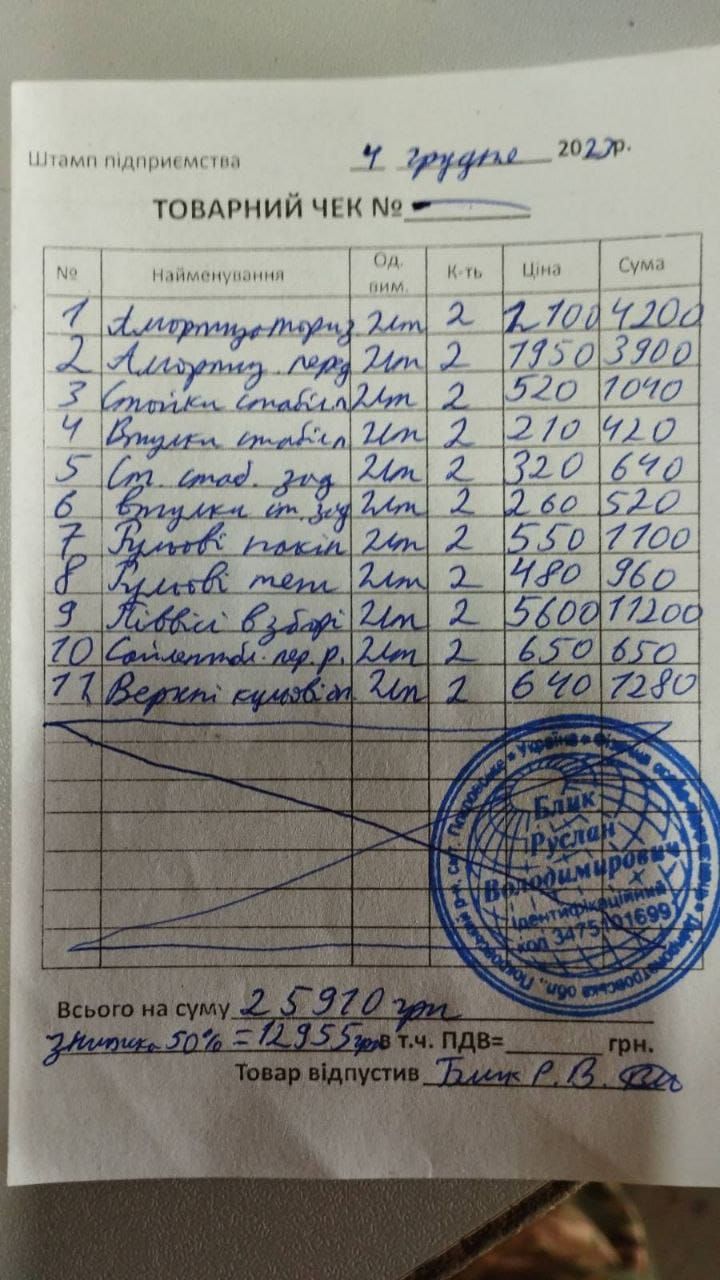 Штамп підприємства 4 грудня 2023р.
ТОВАРНИЙ ЧЕК №
№ Найменування Од. вим. К-ть Ціна Сума
1 Амортизатори з 2шт 2 2100 4200
2 Амортиз. перд 2шт 2 1950 3900
3 Стойки стабіл 2шт 2 520 1040
4 Втулки стабіл 2шт 2 210 420
5 Ст. стаб. зад 2шт 2 320 640
6 Втулки ст. зад 2шт 2 260 520
7 Рульові након 2шт 2 550 1100
8 Рульові тяги 2шт 2 480 960
9 Піввісі в зборі 2шт 2 5600 11200
10 Сайлентбл. пер. р. 2шт 2 650 650
11 Верхні кульові 2шт 2 640 1280
Україна * Фізична особа-підприємець * Дніпропетровська обл., Покровський р-н, смт. Покровське *
Блик
Руслан
Володимирович
Ідентифікаційний
код 3475101699
Всього на суму 25910 грн
знижка 50% = 12955 грн в т.ч. ПДВ= грн.
Товар відпустив Блик Р. В.